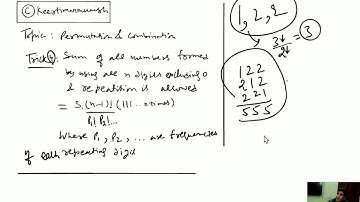 © Keertivansuuh
Topic: Permutation & combination
Trick: Sum of all numbers formed
by using all n digits excluding 0
& repetition is allowed
= S.(n-1)! (111... n times)
P₁! P₂! ...
Where P₁, P₂, ... are frequencies
of each repeating digit
1, 2, 2
3!
2!
= 3
122
212
221
555